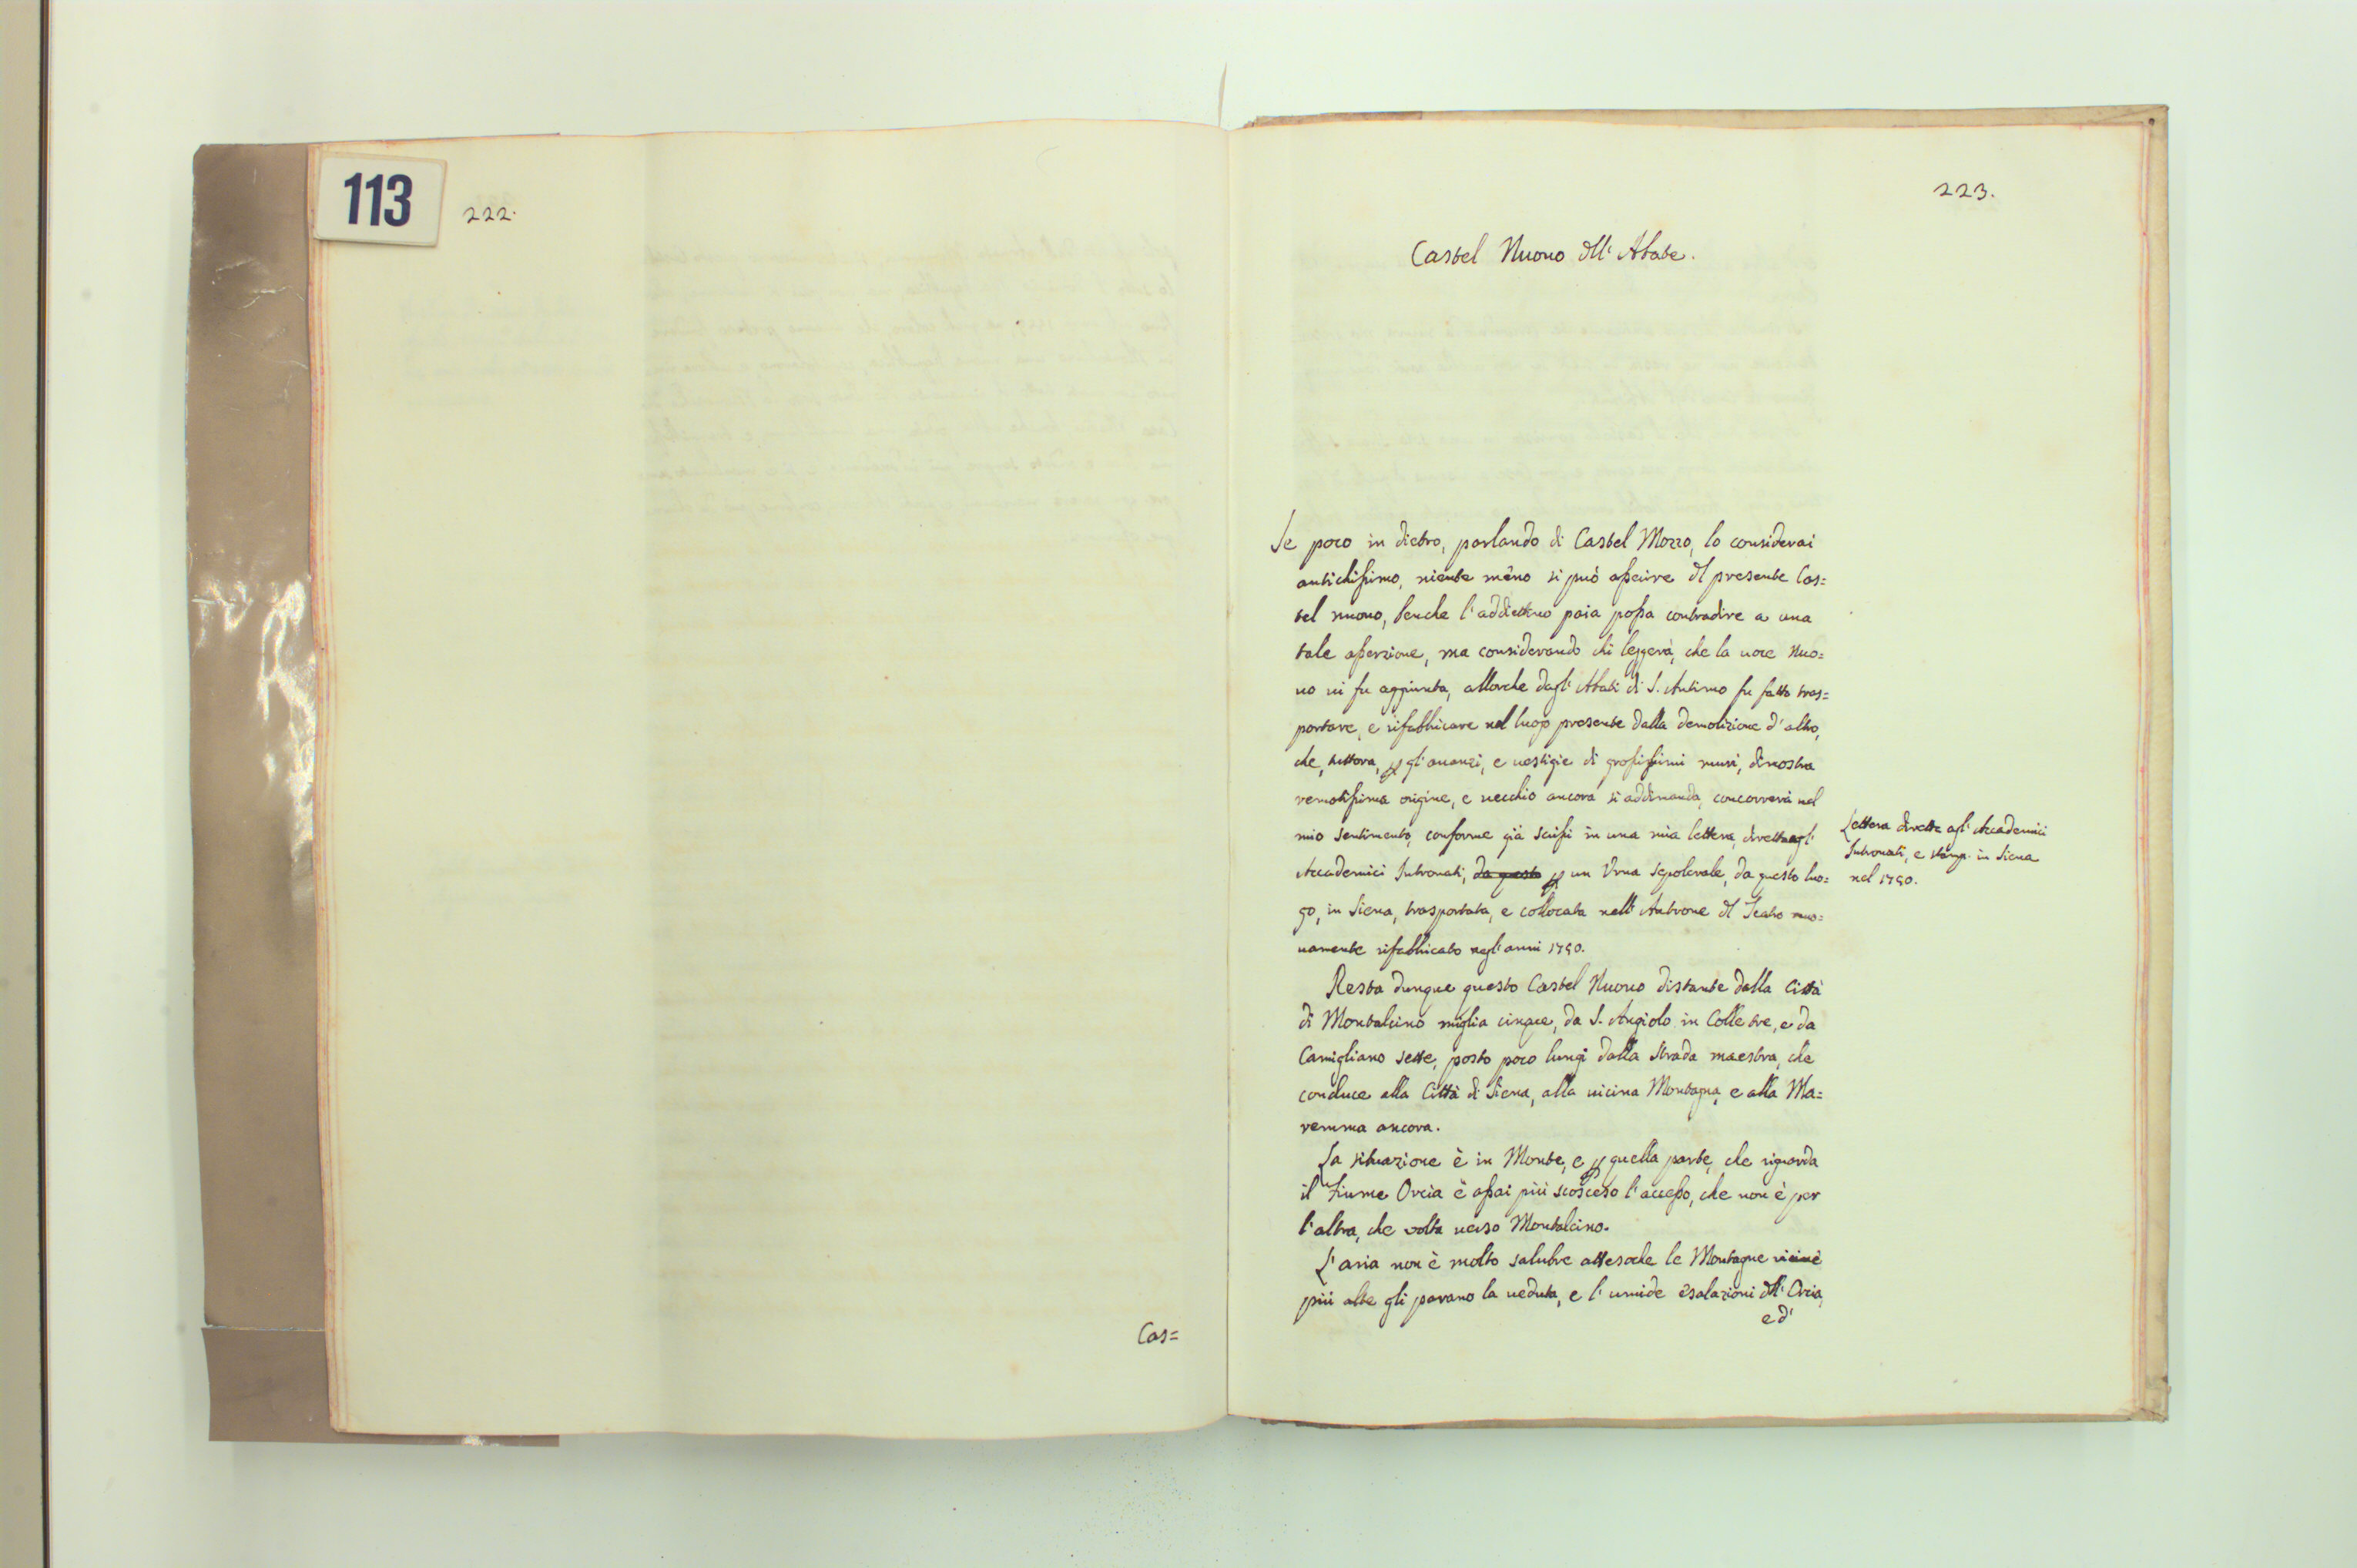 113
222.
Cas=
223.
Castel Nuouo dell'Abate.
Se poco in dietro, parlando di Castel Mozzo, lo considerai
antichissimo, niente meno si può asserire del presente Cas=
tel nuouo, benche l'addiettiuo paia possa contradire a una
tale asserzione, ma considerando chi leggerà, che la uoce Nuo=
uo ui fu aggiunta, allorche dagl'Abati di S. Antimo fu fatto tras=
portare, e rifabbricare nel luogo presente dalla demolizione d'altro,
che, tuttora, p gl'auanzi, e uestigie di grossissimi muri, dimostra
remotissima origine, e uecchio ancora si addimanda, concorrerà nel
mio sentimento, conforme già scrissi in una mia lettera, diretta agl'
Accademici Intronati, da questo p un Vrna Sepolcrale, da questo luo=
go, in Siena, trasportata, e collocata nell'Antrone del Teatro nuo=
uamente rifabbricato negl'anni 1750.
Lettera diretta agl'Accademici
Intronati, e stamp. in Siena
nel 1750.
Resta dunque questo Castel Nuouo distante dalla Città
di Montalcino miglia cinque, da S. Angiolo in Colle tre, e da
Camigliano sette, posto poco lungi dalla Strada maestra, che
conduce alla Città di Siena, alla uicina Montagna, e alla Ma=
remma ancora.
La situazione è in Monte, e p quella parte, che riguarda
il Fiume Orcia è assai più scosceso l'accesso, che non è per
l'altra, che volta uerso Montalcino.
L'aria non è molto salubre attesoche le Montagne vicine
più alte gli parano la ueduta, e l'umide esalazioni dell'Orcia,
ed'